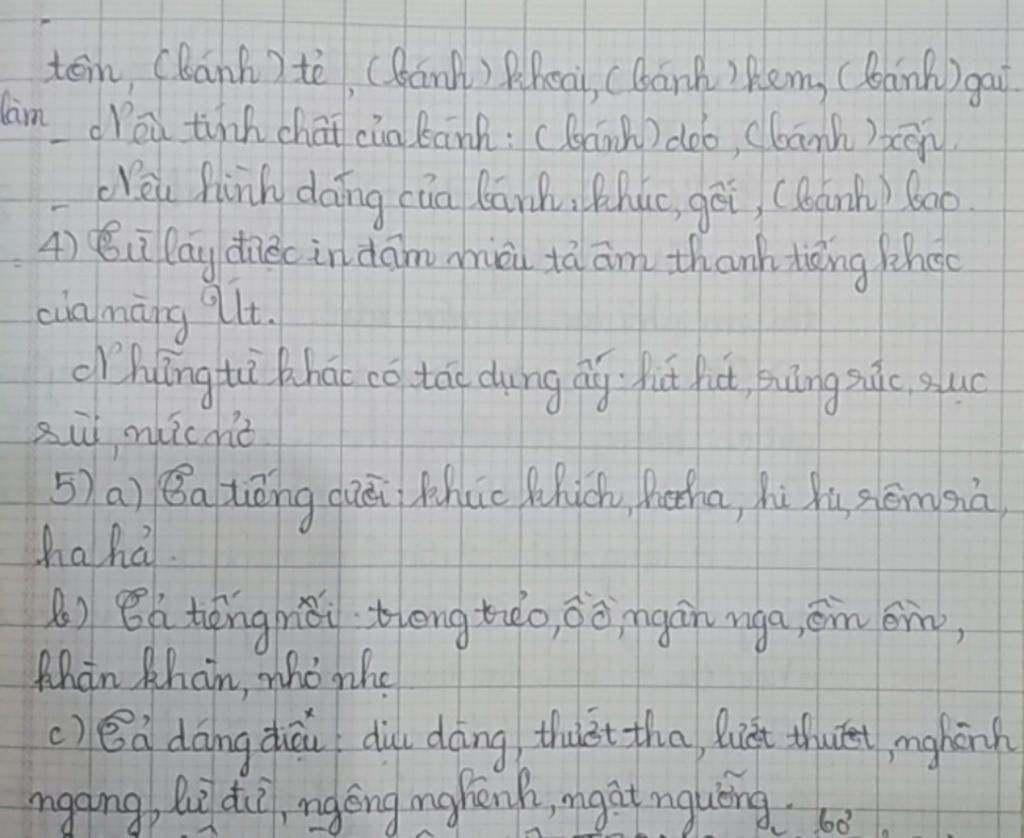 tôm, (bánh) tẻ, (bánh) khoai, (bánh) kem, (bánh) gai.
làm - Nêu tính chất của bánh: (bánh) dẻo, (bánh) xốp.
- Nêu hình dáng của bánh: khúc, gối, (bánh) bao.
4) Từ láy được in đậm miêu tả âm thanh tiếng khóc
của nàng Út.
Những từ khác có tác dụng ấy: hít hít, sưng sức, sục
sùi, nức nở
5) a) Tả tiếng cười: khúc khích, ha ha, hi hi, rôm rả,
ha hả.
b) Tả tiếng nói: trong trẻo, ồ ồ, ngân nga, ồm ồm,
khàn khàn, nhỏ nhẹ
c) Tả dáng điệu: dịu dàng, thướt tha, lướt thướt, nghênh
ngang, lừ đừ, ngông nghênh, ngật ngưỡng.
bở